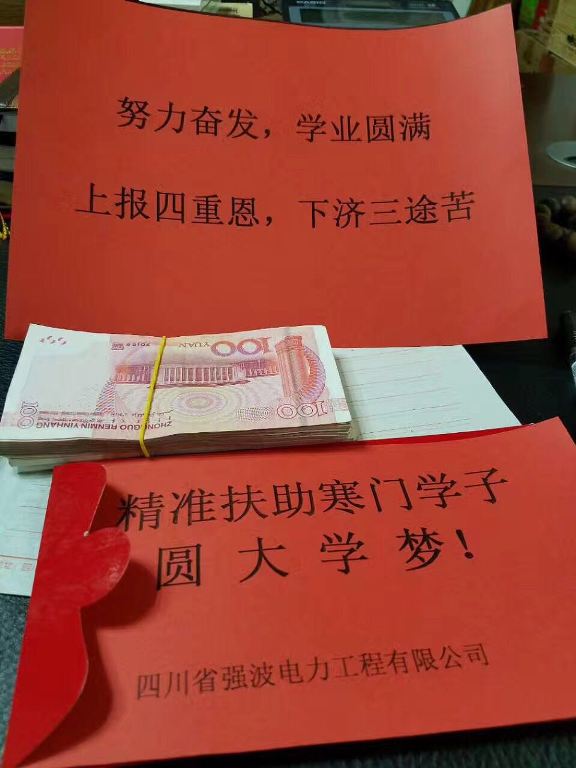 努力奋发，学业圆满
上报四重恩，下济三途苦
100
YUAN
100
100
ZHONGGUO RENMIN YINHANG
精准扶助寒门学子
圆大学梦！
四川省强波电力工程有限公司